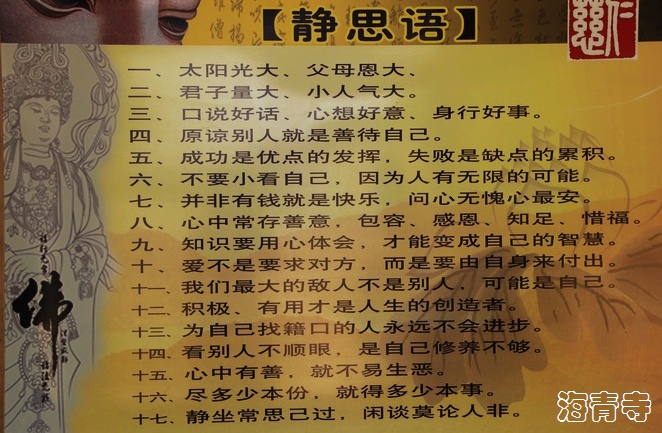 【静思语】
一、太阳光大、父母恩大、
二、君子量大、小人气大。
三、口说好话、心想好意、身行好事。
四、原谅别人就是善待自己。
五、成功是优点的发挥，失败是缺点的累积。
六、不要小看自己，因为人有无限的可能。
七、并非有钱就是快乐，问心无愧心最安。
八、心中常存善意，包容、感恩、知足、惜福。
九、知识要用心体会，才能变成自己的智慧。
十、爱不是要求对方，而是要由自身来付出。
十一、我们最大的敌人不是别人，可能是自己。
十二、积极、有用才是人生的创造者。
十三、为自己找籍口的人永远不会进步。
十四、看别人不顺眼，是自己修养不够。
十五、心中有善，就不易生恶。
十六、尽多少本份，就得多少本事。
十七、静坐常思己过，闲谈莫论人非。
佛
海青寺